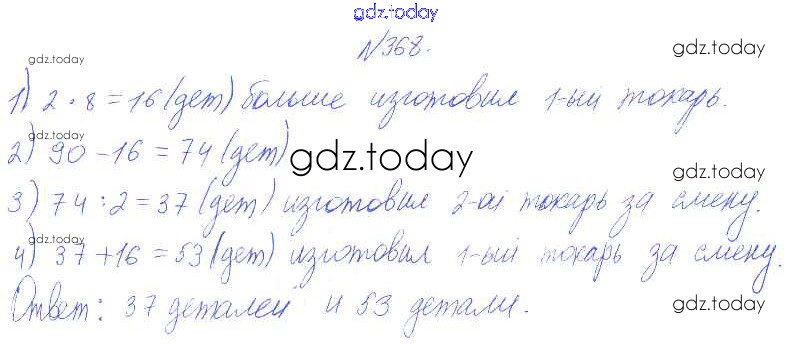 gdz.today
№368.
gdz.today
gdz.today
1) 2 · 8 = 16 (дет) больше изготовил 1-ый токарь.
gdz.today
2) 90 - 16 = 74 (дет)
gdz.today
gdz.today
3) 74 : 2 = 37 (дет) изготовил 2-ой токарь за смену.
gdz.today
gdz.today
4) 37 + 16 = 53 (дет) изготовил 1-ый токарь за смену.
Ответ: 37 деталей и 53 детали.
gdz.today